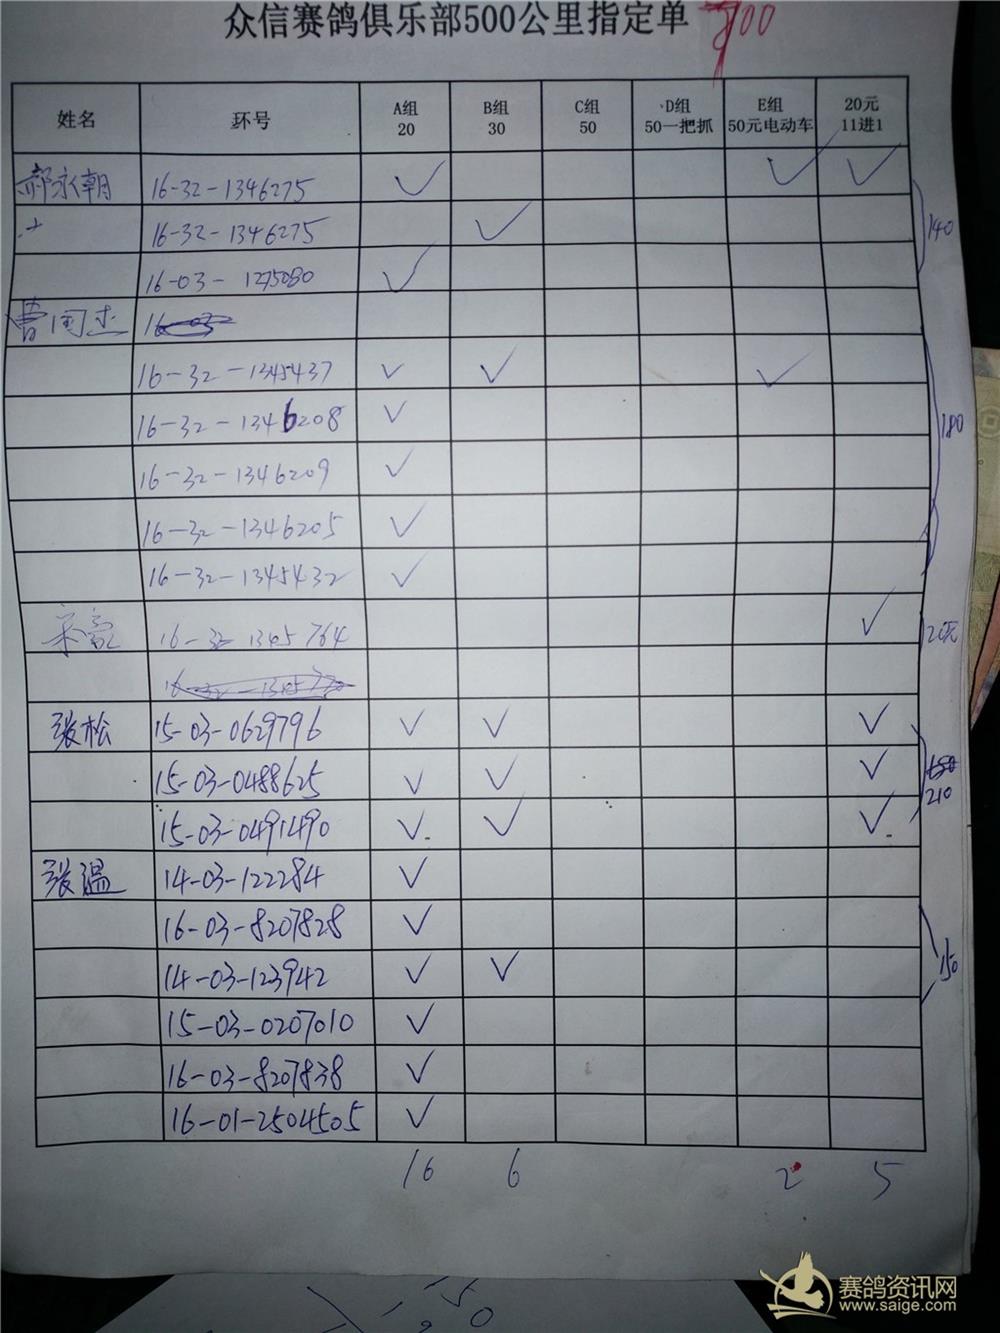 众信赛鸽俱乐部500公里指定单 700
姓名 环号 A组 20 B组 30 C组 50 D组 50一把抓 E组 50元电动车 20元 11进1
郝永朝 16-32-1346275 ✓ ✓ ✓
16-32-1346275 ✓ 140
16-03- 1275080 ✓
曹国杰
16-32-1345437 ✓ ✓ ✓
16-32-1346208 ✓ 180
16-32-1346209 ✓
16-32-1346205 ✓
16-32-1345432 ✓
宋毅 16-32 1345764 ✓ 20元
张松 15-03-0629796 ✓ ✓ ✓
15-03-0488625 ✓ ✓ ✓ 210
15-03-0491490 ✓ ✓ ✓
张温 14-03-122284 ✓
16-03-8207828 ✓
14-03-123942 ✓ ✓ 150
15-03-0207010 ✓
16-03-8207838 ✓
16-01-2504505 ✓
16 6 2 5
150
赛鸽资讯网
www.saige.com